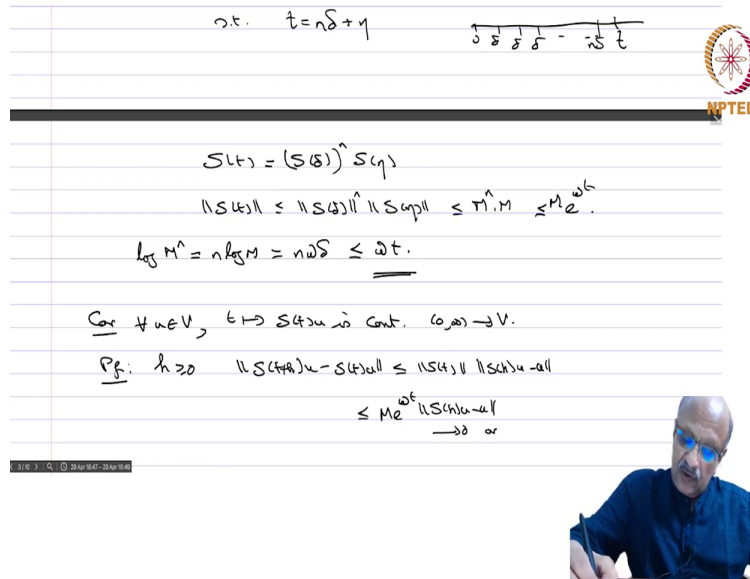 s.t. t = nδ + η
0 δ δ δ - nδ t
NPTEL
S(t) = (S(δ))^n S(η)
||S(t)|| ≤ ||S(δ)||^n ||S(η)|| ≤ M^n. M ≤ M e^{ωt}.
log M^n = n log M = nωδ ≤ ωt.
Cor ∀ u ∈ V, t ↦ S(t)u is cont. (0,∞) → V.
Pf: h ≥ 0 ||S(t+h)u - S(t)u|| ≤ ||S(t)|| ||S(h)u - u||
≤ M e^{ωt} ||S(h)u - u||
→ 0 as
3 / 10 29 Apr 18:47 - 29 Apr 18:49